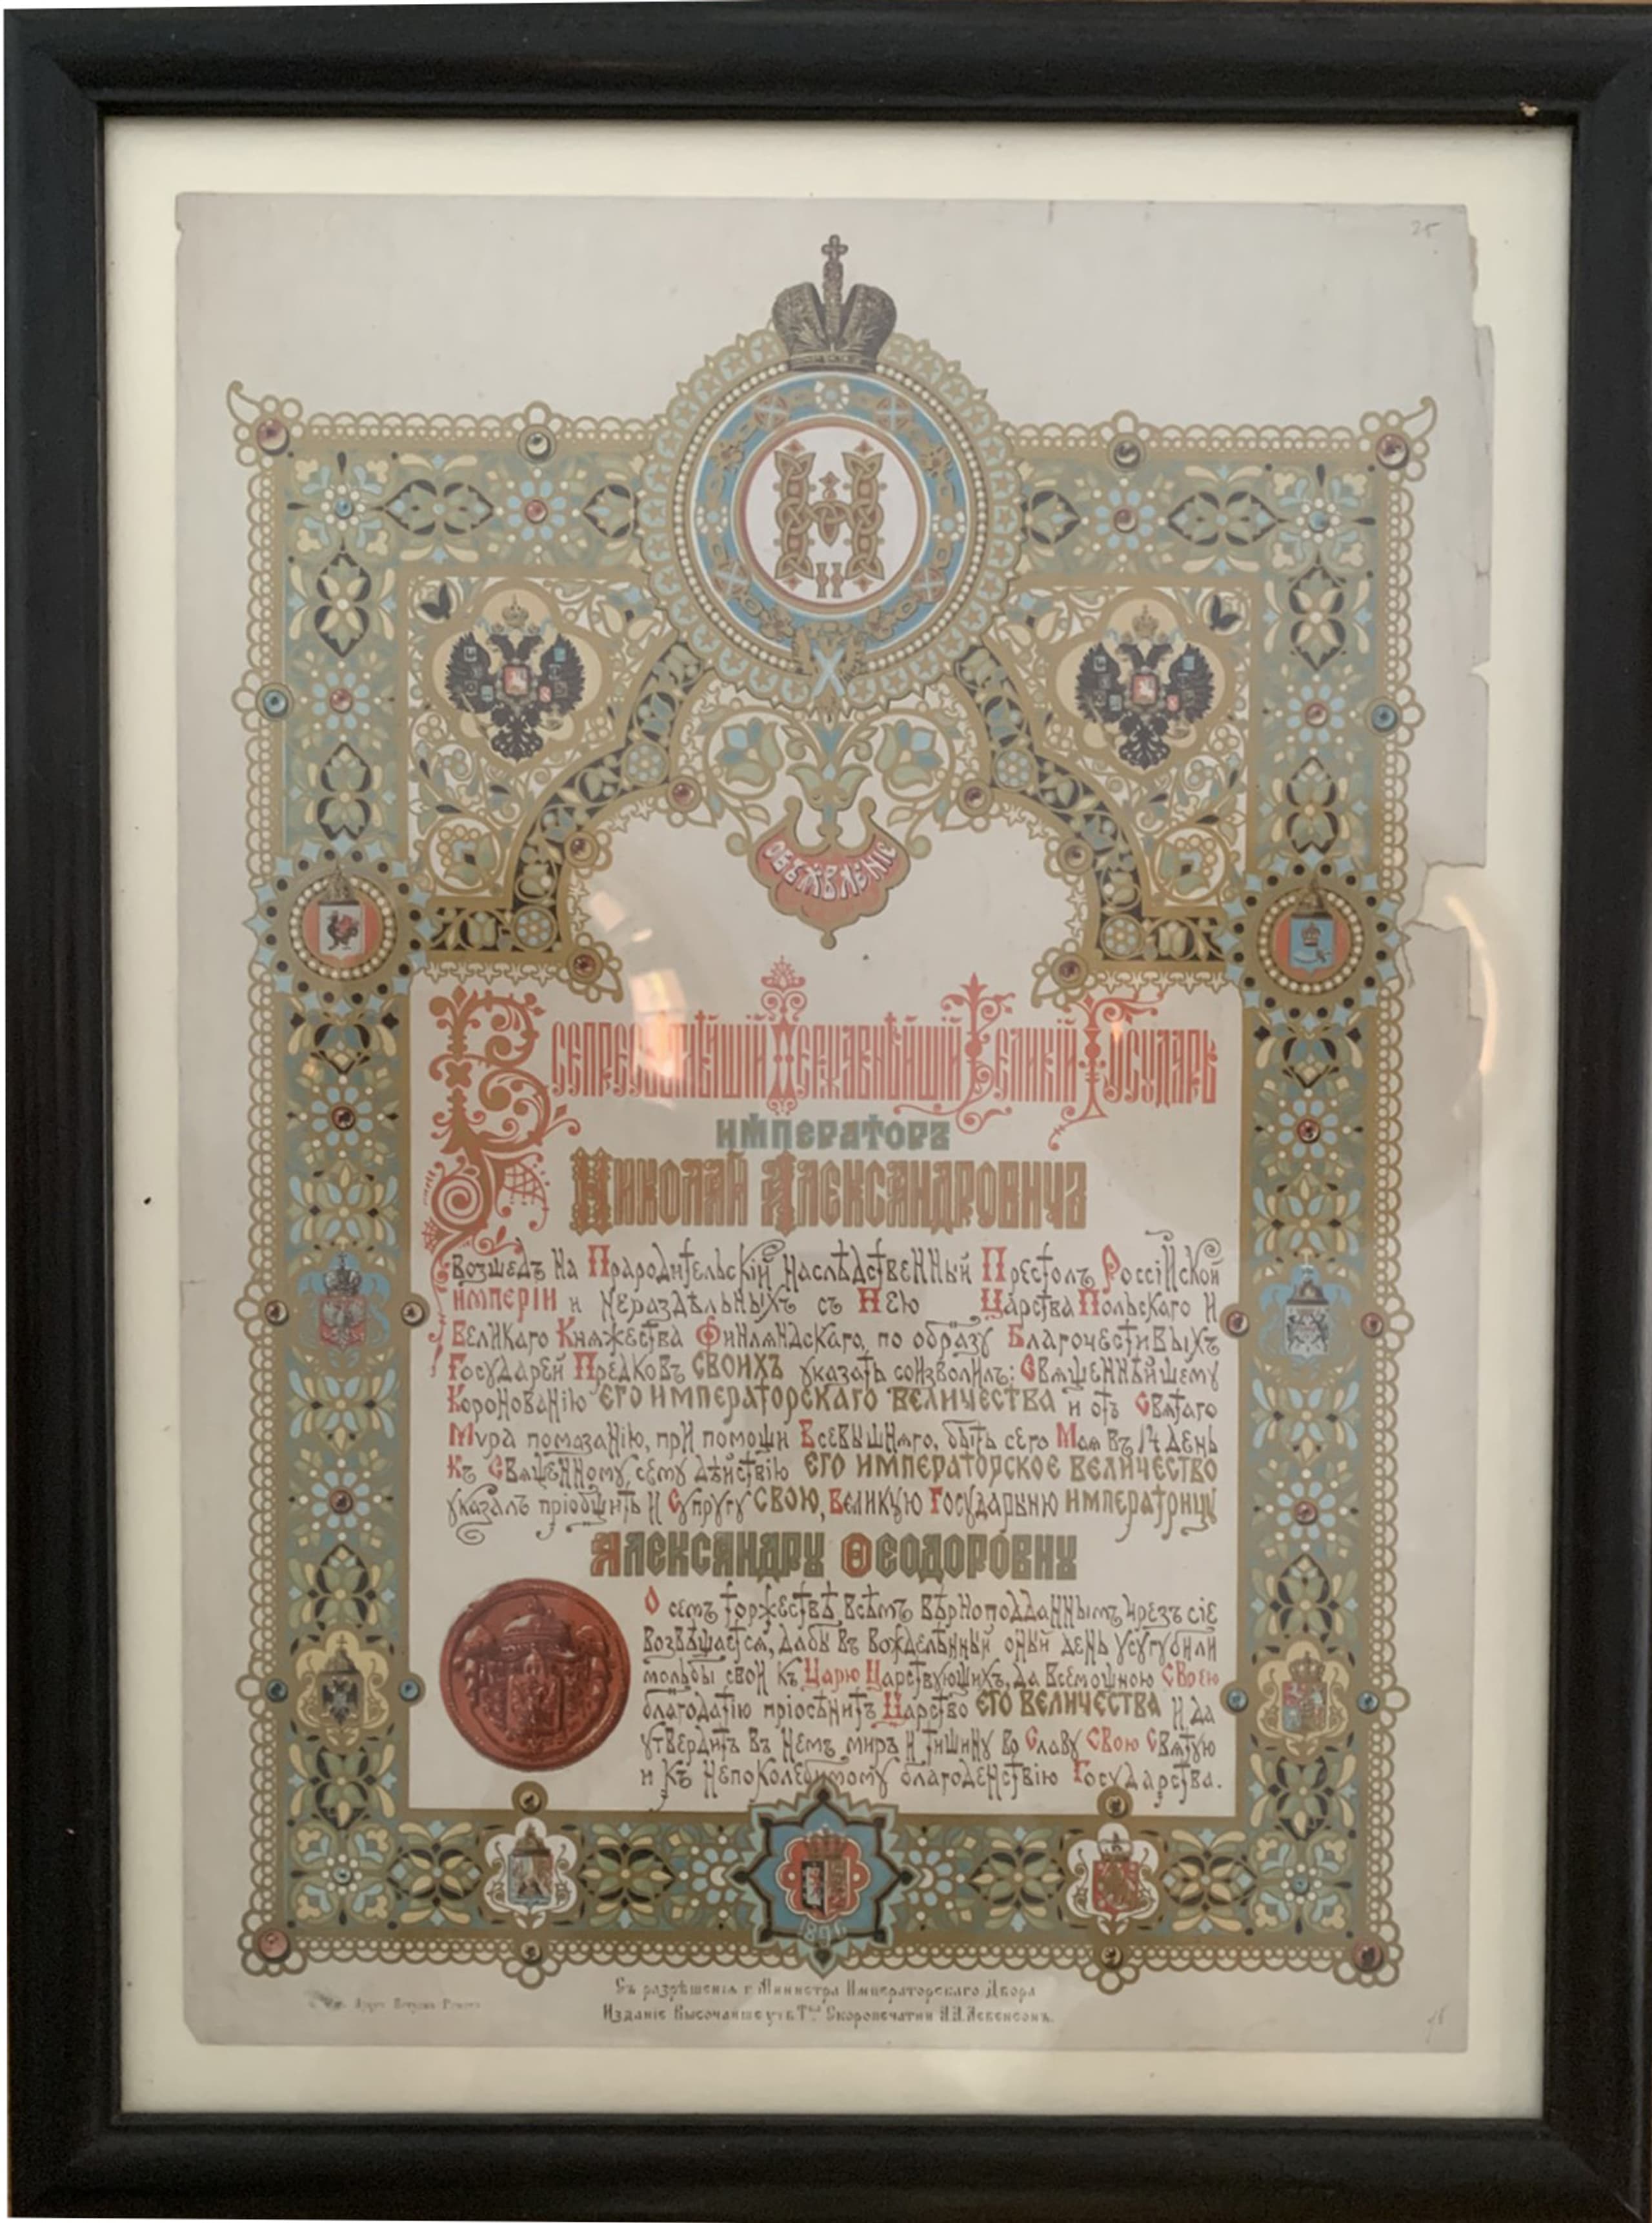 25
Н
II
ОБЪЯВЛЕНІЕ
ВСЕПРЕСВѢТЛѢЙШІЙ ДЕРЖАВНѢЙШІЙ ВЕЛИКІЙ ГОСУДАРЬ
ИМПЕРАТОРЪ
НИКОЛАЙ АЛЕКСАНДРОВИЧЪ
возшедъ на Прародительскій Наслѣдственный Престолъ Россійской
ИМПЕРІИ и нераздѣльныхъ съ Нею Царства Польскаго и
Великаго Княжества Финляндскаго, по образу Благочестивыхъ
Государей Предковъ СВОИХЪ указать соизволилъ: Священнѣйшему
Коронованію ЕГО ИМПЕРАТОРСКАГО ВЕЛИЧЕСТВА и отъ Святаго
Мѵра помазанію, при помощи Всевышняго, быть сего Мая въ 14 день
Къ Священному сему дѣйствію ЕГО ИМПЕРАТОРСКОЕ ВЕЛИЧЕСТВО
указалъ пріобщить и Супругу СВОЮ, Великую Государыню ИМПЕРАТРИЦУ
АЛЕКСАНДРУ ѲЕОДОРОВНУ
О семъ торжествѣ, всѣмъ вѣрноподданнымъ чрезъ сіе
возвѣщается, дабы въ вожделѣнный оный день усугубили
мольбы свои къ Царю Царствующихъ, да всемощною СВОЕЮ
благодатію пріосѣнитъ Царство ЕГО ВЕЛИЧЕСТВА и да
утвердитъ въ немъ миръ и тишину во Славу СВОЮ Святую
и къ непоколебимому благоденствію Государства.
1896
Съ разрѣшенія г. Министра Императорскаго Двора
Изданіе Высочайше утв. Т-ва Скоропечатни А.А. Левенсонъ.